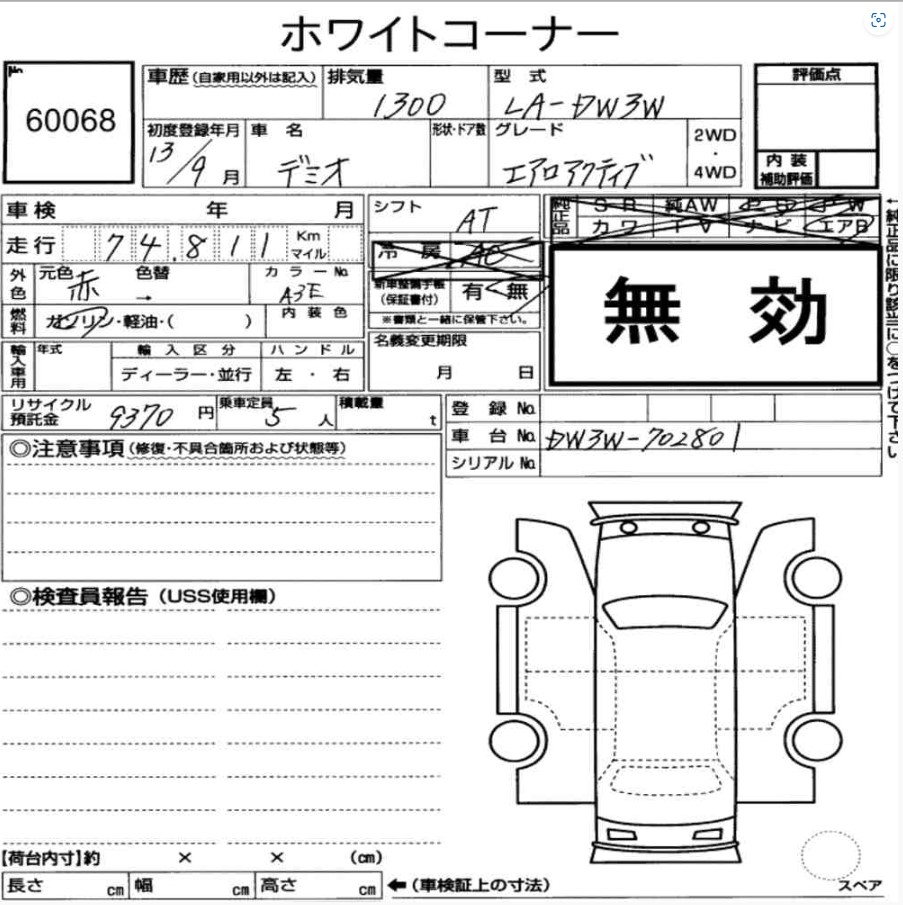 ホワイトコーナー
No.
60068
車歴(自家用以外は記入)
排気量
1300
型 式
LA-DW3W
評価点
初度登録年月
13/9月
車 名
デミオ
形状・ドア数
グレード
エアロアクティブ
2WD
・
4WD
内 装
補助評価
車検 年 月
シフト
AT
純正品
S R 純AW P S P W
カワ TV ナビ エアB
←純正品に限り該当に○をつけて下さい
走行 74.811 Km マイル
冷 房 AC
外色
元色 赤 色替 →
カラーNo.
A3E
新車整備手帳
(保証書付)
有・無
※書類と一緒に保管下さい。
無 効
燃料
ガソリン・軽油・( )
内 装 色
輸入車用
年式
輸 入 区 分
ハ ン ド ル
ディーラー・並行
左 ・ 右
名義変更期限
月 日
リサイクル
預託金
9370 円
乗車定員
5 人
積載量
t
登 録 No.
車 台 No. DW3W-702801
シリアル No.
◎注意事項(修復・不具合箇所および状態等)
◎検査員報告(USS使用欄)
【荷台内寸】約 × × (cm)
長さ cm 幅 cm 高さ cm ←(車検証上の寸法)
スペア